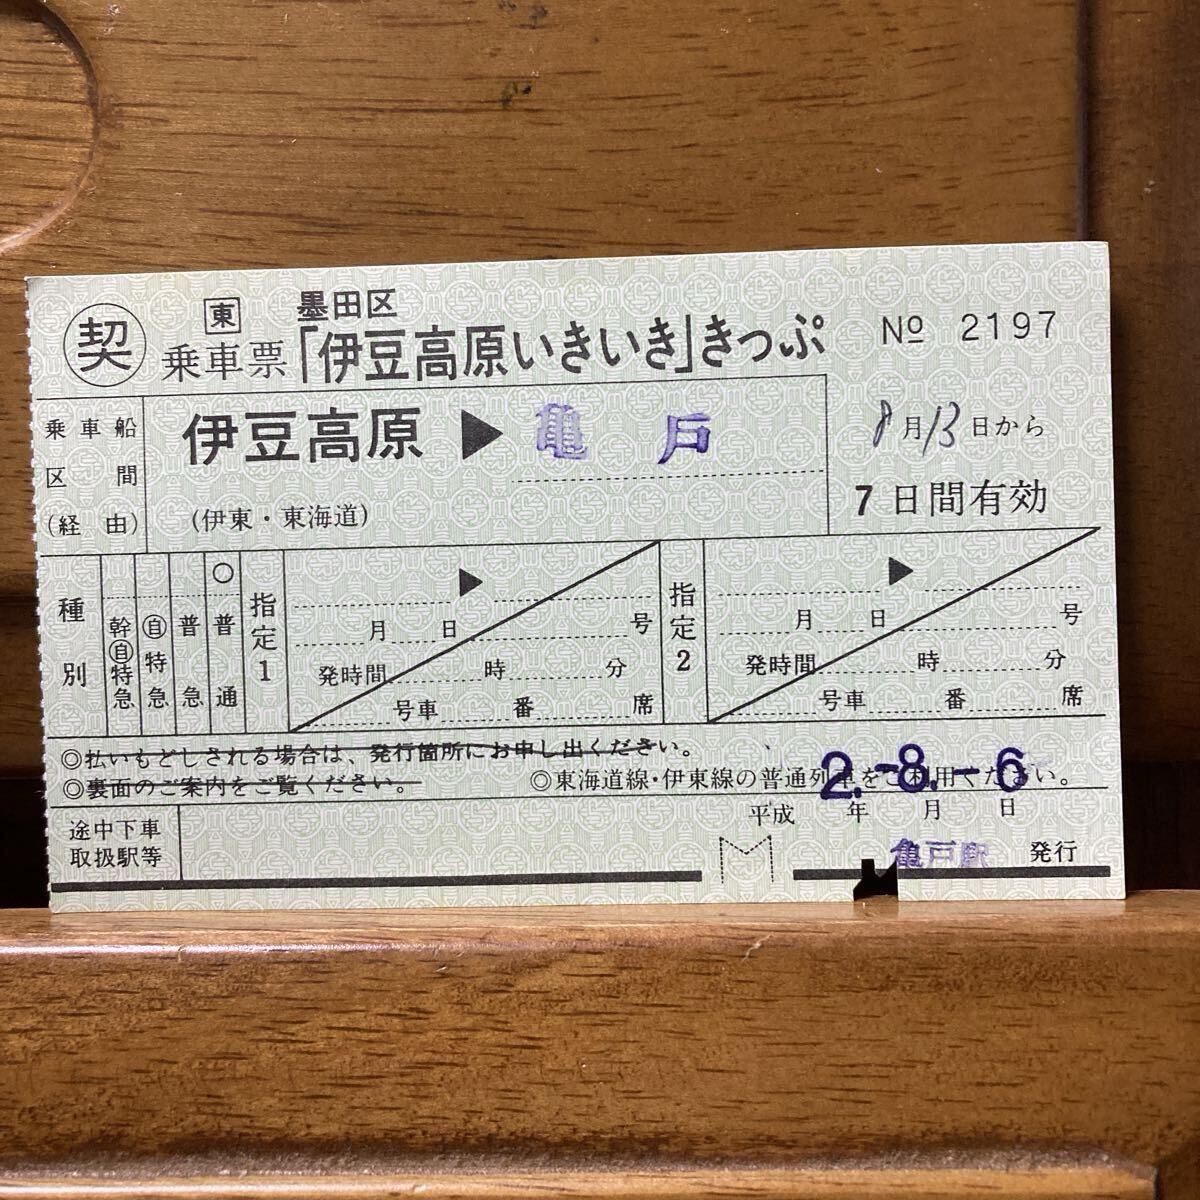 契 東 墨田区
乗車票「伊豆高原いきいき」きっぷ № 2197
乗車船区間(経由) 伊豆高原▶亀戸
(伊東・東海道)
8月13日から
7日間有効
種別
幹自特急 自特急 普急 ○普通
指定1
▶
月 日 号
発時間 時 分
号車 番 席
指定2
▶
月 日 号
発時間 時 分
号車 番 席
◎払いもどしされる場合は、発行箇所にお申し出ください。
◎裏面のご案内をご覧ください。 ◎東海道線・伊東線の普通列車をご利用ください。
2.-8.-6
平成 年 月 日
途中下車
取扱駅等
亀戸駅 発行